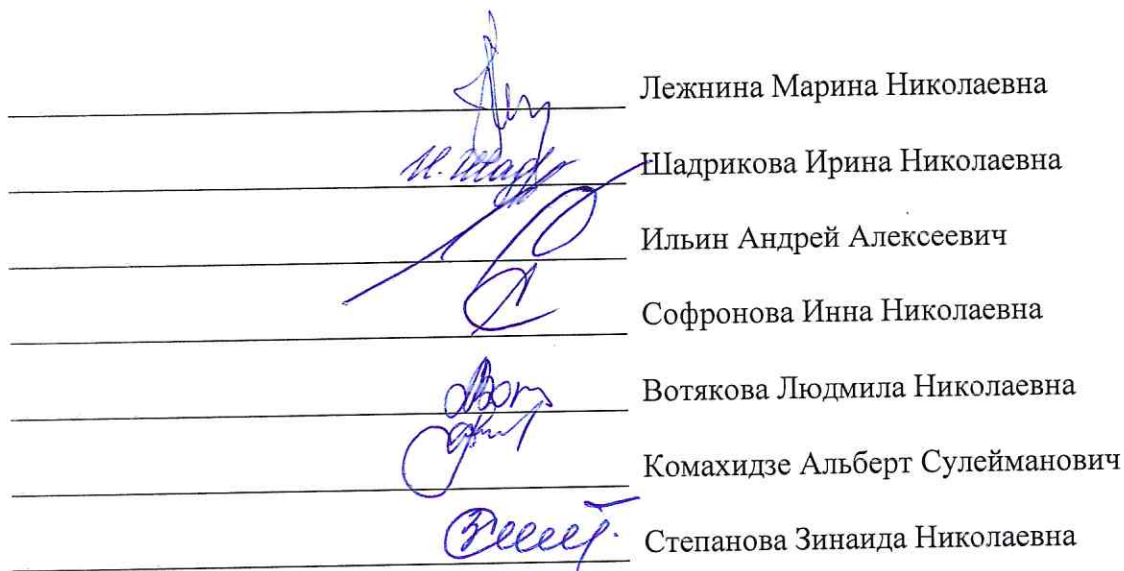 Лежнина Марина Николаевна
Шадрикова Ирина Николаевна
Ильин Андрей Алексеевич
Софронова Инна Николаевна
Вотякова Людмила Николаевна
Комахидзе Альберт Сулейманович
Степанова Зинаида Николаевна